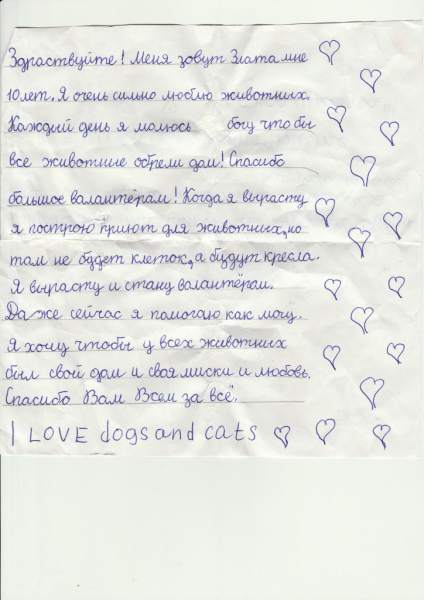 Здраствуйте! Меня зовут Злата мне
10 лет. Я очень сильно люблю животных.
Каждый день я молюсь богу чтобы
все животные обрели дом! Спасибо
большое валантёрам! Когда я вырасту
я построю приют для животных, но
там не будет клеток, а будут кресла.
Я вырасту и стану валантёрам.
Даже сейчас я помогаю как могу.
Я хочу чтобы у всех животных
был свой дом и своя миски и любовь.
Спасибо Вам Всем за всё.
I LOVE dogs and cats